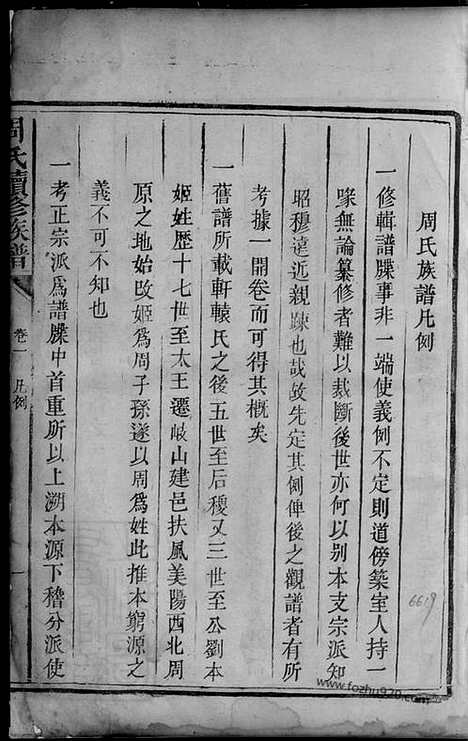 周氏族譜凡例
一修輯譜牒事非一端使義例不定則道傍築室人持一
喙無論纂修者難以裁斷後世亦何以别本支宗派知
昭穆遠近親踈也哉故先定其例俾後之觀譜者有所
考據一開卷而可得其概矣
一舊譜所載軒轅氏之後五世至后稷又三世至公劉本
姬姓歷十七世至太王遷岐山建邑扶風美陽西北周
原之地始改姬爲周子孫遂以周爲姓此推本窮源之
義不可不知也
一考正宗派爲譜牒中首重所以上溯本源下稽分派使
周氏續修族譜
卷一 凡例
一
6619
www.fozhu920.com